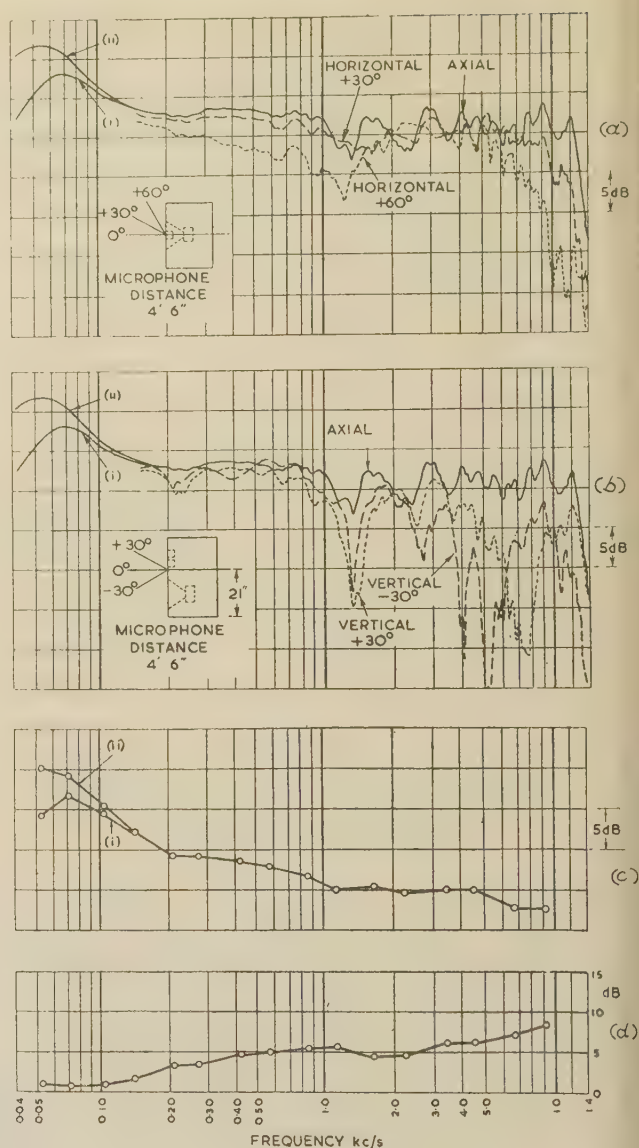 (ii)
HORIZONTAL
+30°
AXIAL
(i)
(a)
5dB
HORIZONTAL
+60°
+60°
+30°
0°
MICROPHONE
DISTANCE
4' 6"
(ii)
AXIAL
(i)
(b)
5dB
+30°
0°
-30°
21"
VERTICAL
-30°
VERTICAL
+30°
MICROPHONE
DISTANCE
4' 6"
(ii)
(i)
5dB
(c)
15
dB
10
(d)
5
0
0·04
0·05
0·10
0·20
0·30
0·40
0·50
1·0
2·0
3·0
4·0
5·0
1·0
1·4
FREQUENCY kc/s